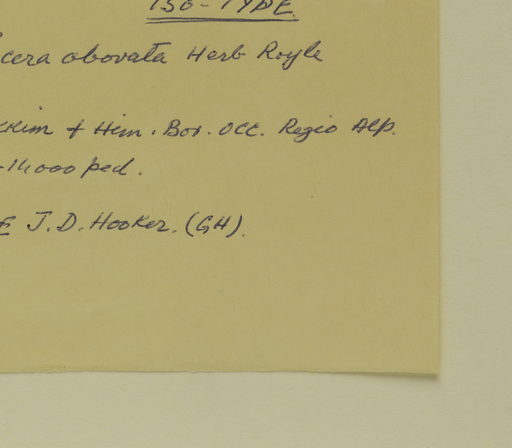 ISO-TYPE.
cera obovata Herb Royle
kim & Him. Bor. Occ. Regio Alp.
-14000 ped.
E J.D. Hooker. (GH).